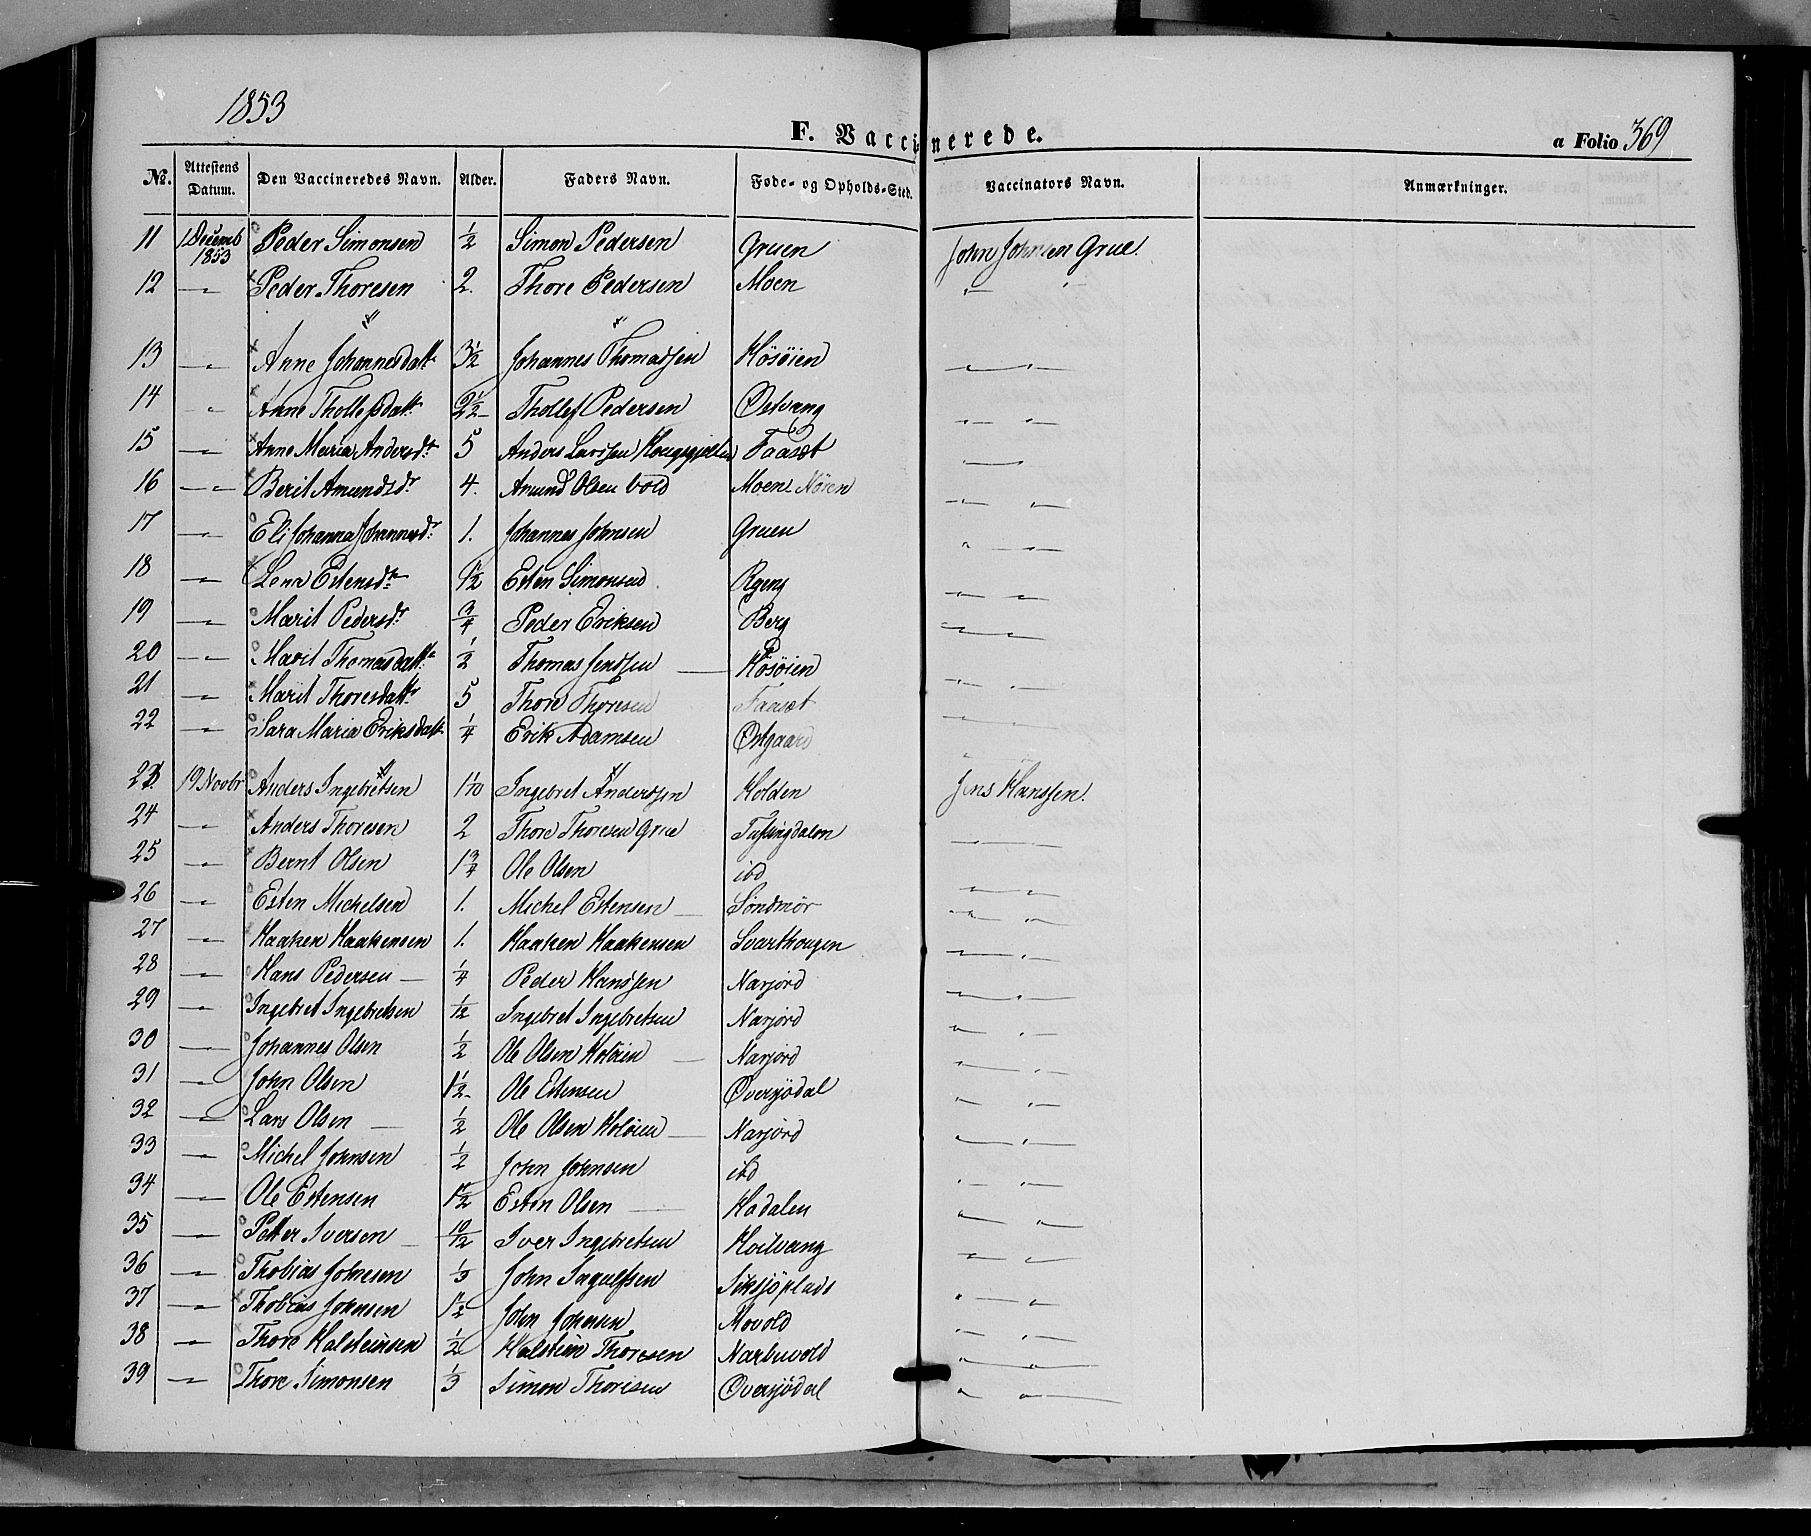 1853
F. Vaccinerede.
a Folio 369
No. Attestens Datum. Den Vaccineredes Navn. Alder. Faders Navn. Føde- og Opholds-Sted. Vaccinators Navn. Anmærkninger.
11 1 Decemb 1853 Peder Simonsen 1/2 Simon Pedersen Gruen John Johnsen Grue.
12 " Peder Thoresen 2. Thore Pedersen Moen " "
13 " Anne Johannesdatt 3 1/2 Johannes Thomassen Høsøien " "
14 " Anne Thollefsdatt 2 1/2 Thollef Pedersen Østvang " "
15 " Anne Maria Andersd. 5 Anders Larssen Faaset " "
16 " Berit Amundsdr 4. Amund Olsen Vold Moen Nøren " "
17 " Eli Johanna Johannesdr 1. Johannes Johnsen Gruen " "
18 " Lena Estensdr 1 1/2 Esten Simonsen Rgeng " "
19 " Marit Pedersdr 3/4 Peder Eriksen Berg " "
20 " Marit Thomasdatt. 1/2 Thomas Jenssen Høsøien " "
21 " Marit Thoresdatt 5 Thore Thoresen Faaset " "
22 " Sara Maria Eriksdatt 1/4 Erik Adamsen Østgaard " "
23 19 Novbr Anders Ingebretsen 1 1/10 Ingebret Anderssen Holden Jens Hanssen.
24 " Anders Thoresen 2 Thore Thoresen Grue Tufsingdalen " "
25 " Bernt Olsen 1 3/4 Ole Olsen ibd " "
26 " Esten Michelsen 1. Michel Estensen Søndmør " "
27 " Haaken Haakensen 1. Haaken Haakensen Svarthougen " "
28 " Hans Pedersen 1/4 Peder Hanssen Narjord " "
29 " Ingebret Ingebretsen 1/12 Ingebret Ingebretsen Narjord " "
30 " Johannes Olsen 1/2 Ole Olsen Holøien Narjord " "
31 " John Olsen 1 1/2 Ole Estensen Øversjødal " "
32 " Lars Olsen 1/2 Ole Olsen Holøien Narjord " "
33 " Michel Johnsen 1/2 John Johnsen ibd " "
34 " Ole Estensen 1 1/2 Esten Olsen Hadalen " "
35 " Petter Iversen 10/12 Iver Ingebretsen Hoilvang " "
36 " Thobias Johnsen 1/3 John Ingulfsen Siksjöplads " "
37 " Thobias Johnsen 1 1/2 John Johnsen Movold " "
38 " Thore Halsteinsen 1/2 Halstein Thoresen Narbuvold " "
39 " Thore Simonsen 1/3 Simon Thoresen Øversjødal " "